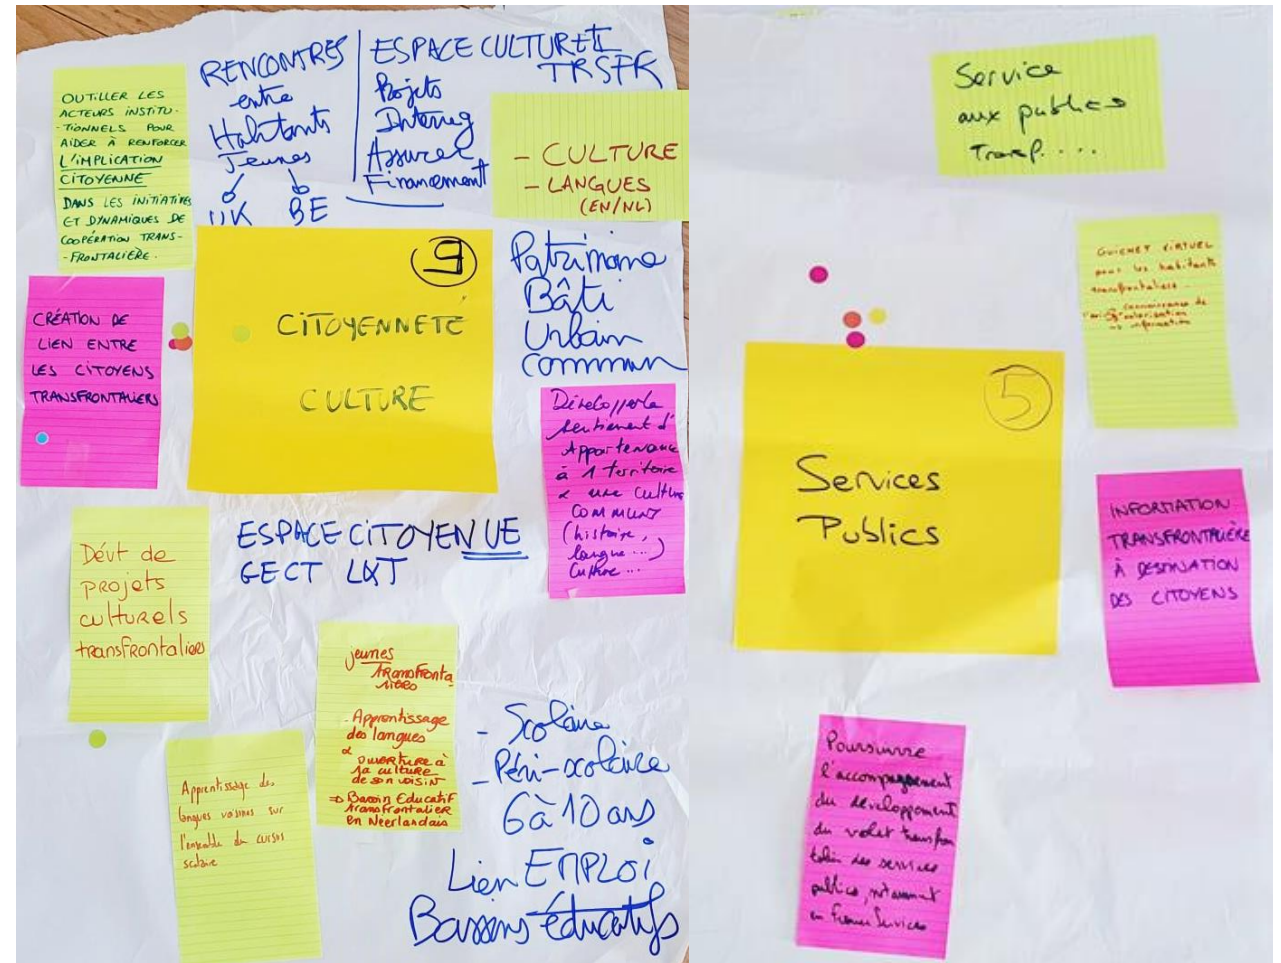 OUTILLER LES
ACTEURS INSTITU-
-TIONNELS POUR
AIDER À RENFORCER
L'IMPLICATION
CITOYENNE
DANS LES INITIATIVES
ET DYNAMIQUES DE
COOPÉRATION TRANS-
-FRONTALIÈRE.
RENCONTRES
entre
Habitants
Jeunes
UK BE
ESPACE CULTUREL
TRSFR
Projets
Interreg
Assurer
Financement
- CULTURE
- LANGUES
(EN/NL)
CRÉATION DE
LIEN ENTRE
LES CITOYENS
TRANSFRONTALIERS
9
CITOYENNETÉ
CULTURE
Patrimoine
Bâti
Urbain
commun
Développer le
sentiment d'
Appartenance
à 1 territoire
& une culture
COMMUNE
(histoire,
langue...)
Culture...
ESPACE CITOYEN UE
GECT LXT
Dévt de
projets
culturels
transfrontaliers
jeunes
transfronta-
liers
- Apprentissage
des langues
&
ouverture à
la culture
de son voisin
=> Bassin Educatif
transfrontalier
en Néerlandais
Apprentissage des
langues voisines sur
l'ensemble du cursus
scolaire
- Scolaire
- Péri-scolaire
6 à 10 ans
Lien EMPLOI
Bassins éducatifs
Service
aux publics
Transf....
GUICHET VIRTUEL
pour les habitants
transfrontaliers
connaissance de
valorisation
-> information
5
Services
Publics
INFORMATION
TRANSFRONTALIÈRE
À DESTINATION
DES CITOYENS
Poursuivre
l'accompagnement
du développement
du volet transfron
talier des services
publics, notamment
en France Services